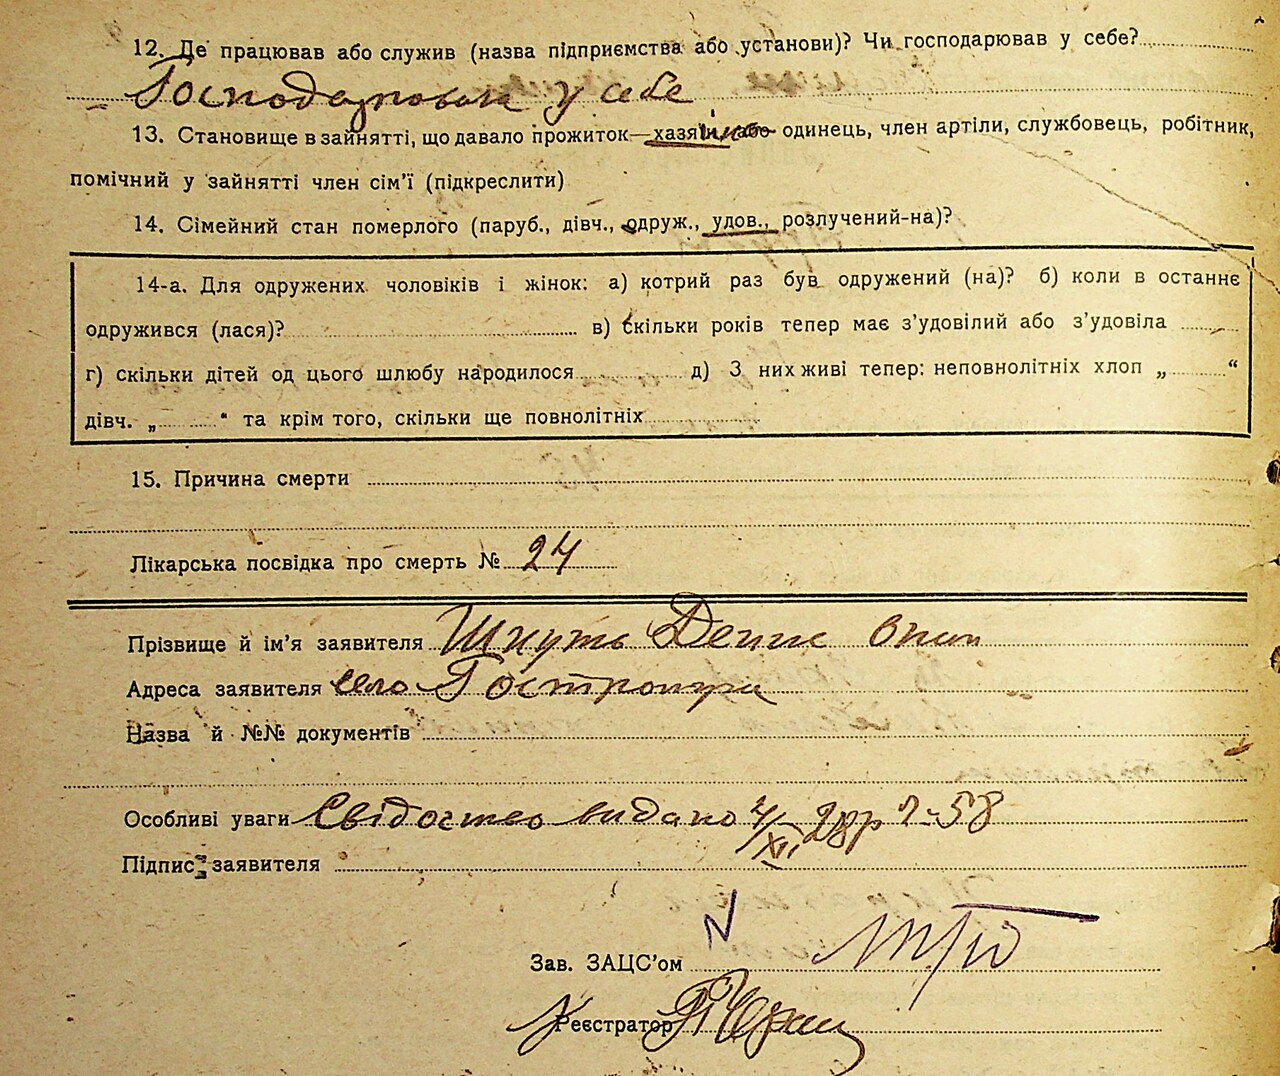 12. Де працював або служив (назва підприємства або установи)? Чи господарював у себе?
Господарював у себе
13. Становище в зайнятті, що давало прожиток—хазяїн, або одинець, член артіли, службовець, робітник,
помічний у зайнятті член сім'ї (підкреслити)
14. Сімейний стан померлого (паруб., дівч., одруж., удов., розлучений-на)?
14-а. Для одружених чоловіків і жінок: а) котрий раз був одружений (на)? б) коли в останнє
одружився (лася)? в) скільки років тепер має з'удовілий або з'удовіла
г) скільки дітей од цього шлюбу народилося д) З них живі тепер: неповнолітніх хлоп „ “
дівч. „ “ та крім того, скільки ще повнолітніх
15. Причина смерти
Лікарська посвідка про смерть № 24
Прізвище й ім'я заявителя Шкуть Денис
Адреса заявителя село
Назва й №№ документів
Особливі уваги Свідоство видано 4/XII 28р 2-58
Підпис заявителя
Зав. ЗАЦС'ом
Реєстратор